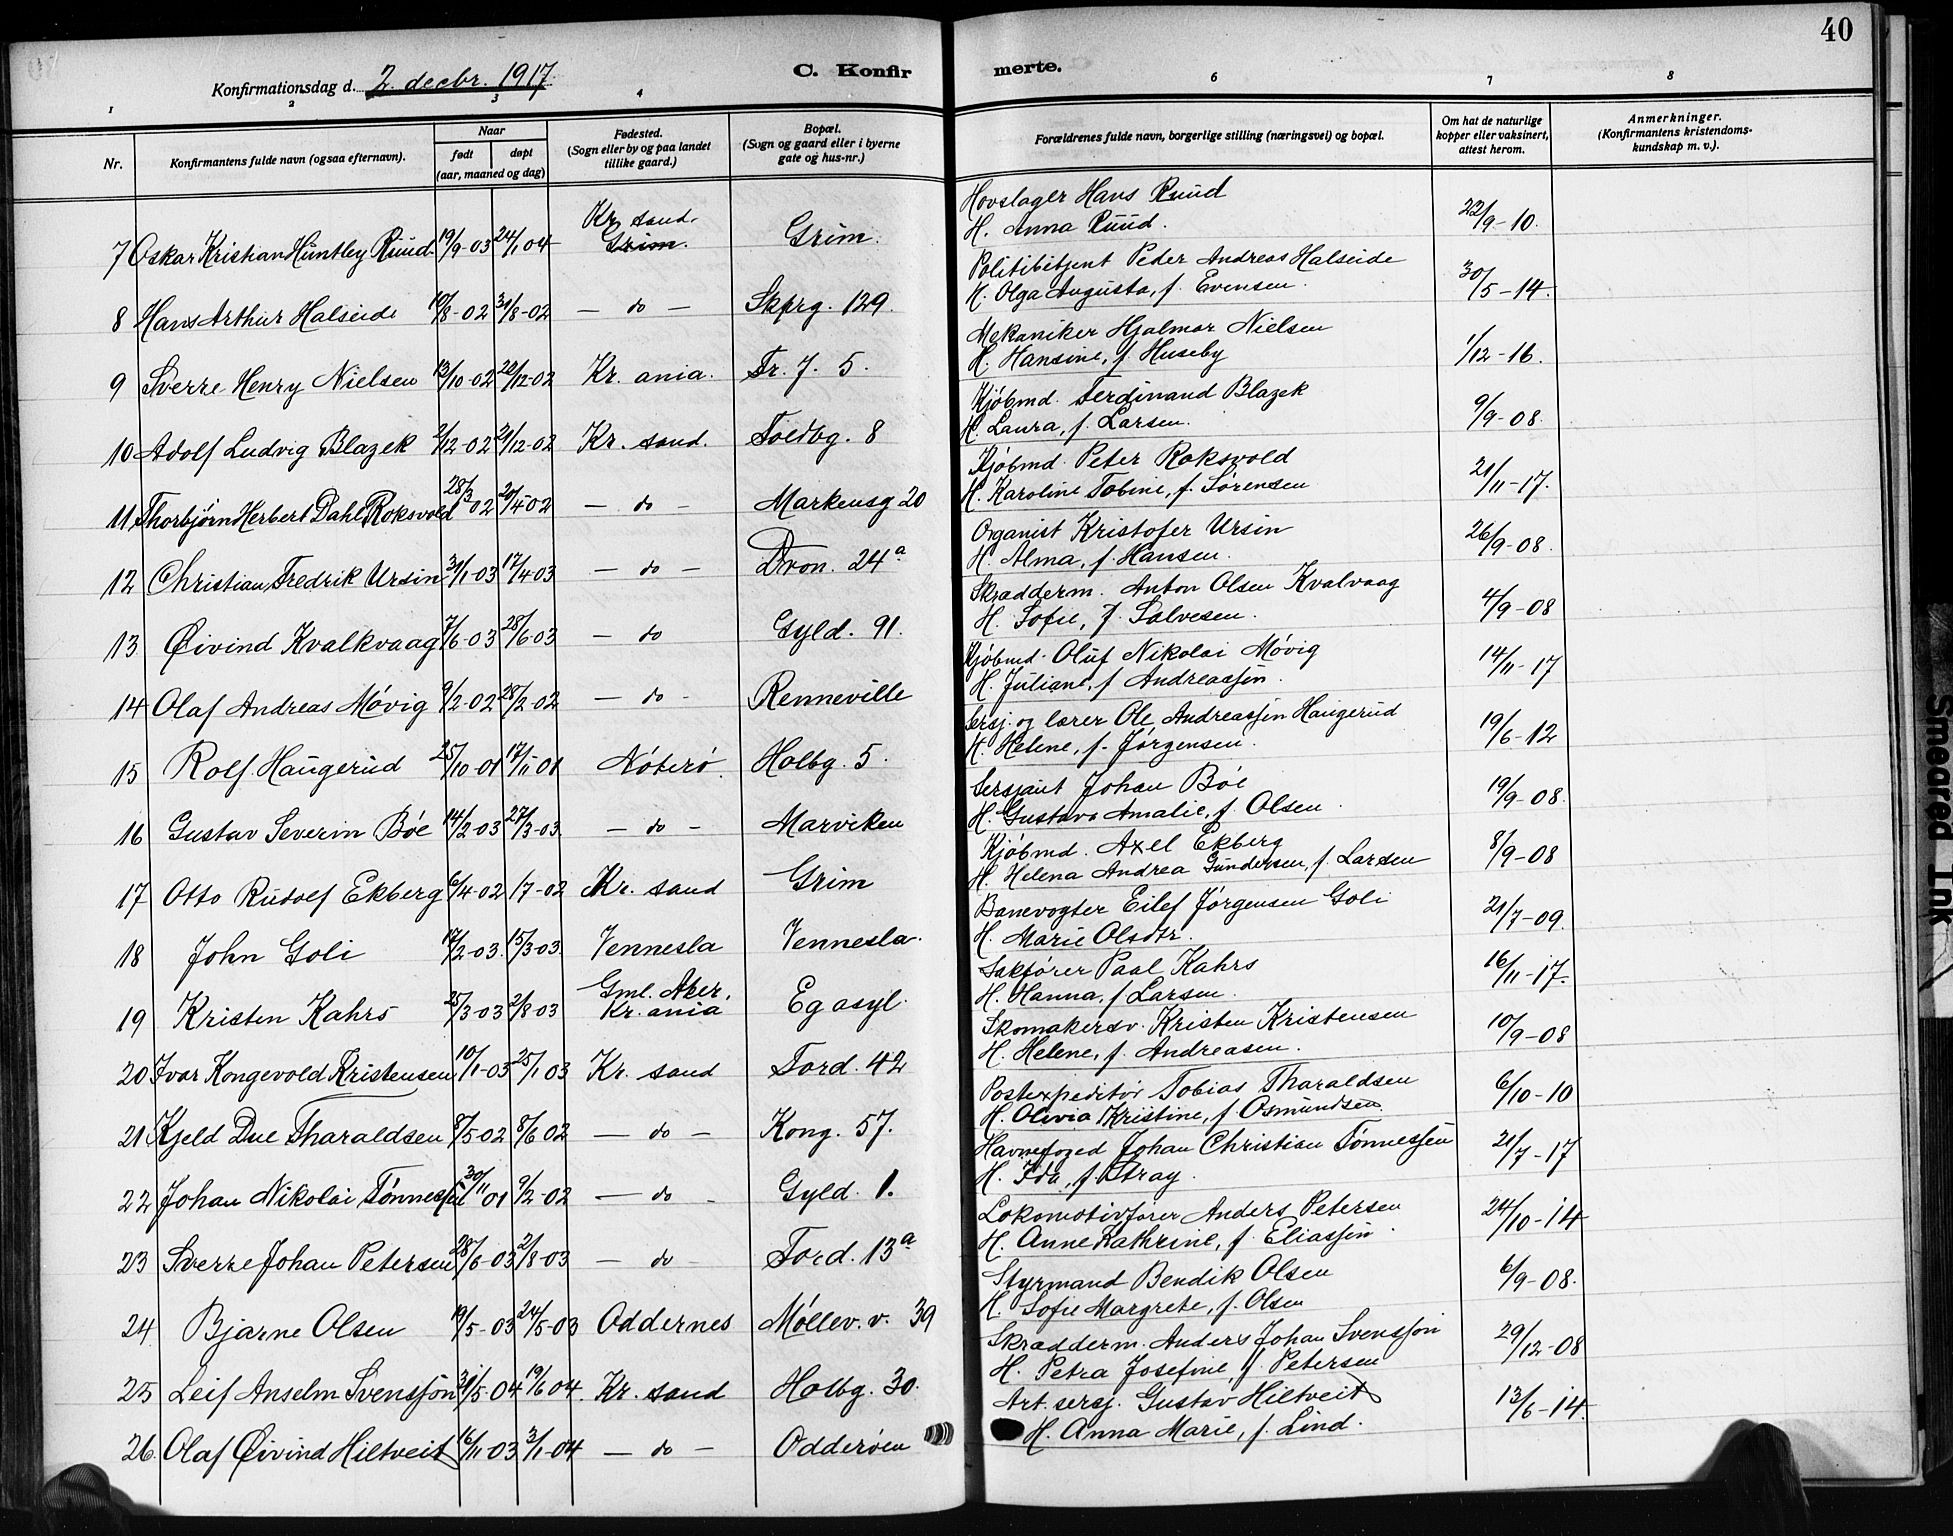 40
Konfirmationsdag d. 2. decbr. 1917.
C. Konfirmerte.
1 2 3 4 6 7 8
Nr.
Konfirmantens fulde navn (ogsaa efternavn).
Naar
født døpt
(aar, maaned og dag)
Fødested.
(Sogn eller by og paa landet
tillike gaard.)
Bopæl.
(Sogn og gaard eller i byerne
gate og hus-nr.)
Forældrenes fulde navn, borgerlige stilling (næringsvei) og bopæl.
Om hat de naturlige
kopper eller vaksinert,
attest herom.
Anmerkninger.
(Konfirmantens kristendoms-
kundskap m. v.).
7 Oskar Kristian Huntley Ruud 19/9-03 24/1 04 Kr. sand. Grim. Grim. Hovslager Hans Ruud
H. Anna Ruud. 22/9-10.
8 Hans Arthur Halseide 10/8-02 31/8-02 — do — Skprg. 129. Politibetjent Peder Andreas Halseide
H. Olga Augusta, f. Evensen. 30/5-14.
9 Sverre Henry Nielsen 13/10-02 22/12-02 Kr. ania. Tr. 7. 5. Mekaniker Hjalmar Nielsen
H. Hansine, f. Huseby 1/12-16.
10 Adolf Ludvig Blazek 2/12-02 29/12-02 Kr. sand. Toldbg. 8 Kjøbmd. Ferdinand Blazek
H. Laura, f. Larsen. 9/9-08.
11 Thorbjørn Herbert Dahl Roksvold 28/3 02 20/4 02 — do — Markensg 20 Kjøbmd. Peter Roksvold
H. Karoline Tobine, f. Sørensen 21/11-17.
12 Christian Fredrik Ursin 31/1-03 17/4-03 — do — Dron. 24a Organist Kristofer Ursin
H. Alma, f. Hansen. 26/9-08.
13 Øivind Kvalkvaag 7/6-03 28/6 03 — do Gyld. 91. Skrædderm. Anton Olsen Kvalvaag
H. Sofie, f. Salvesen. 4/9-08
14 Olaf Andreas Møvig 9/2-02 28/2-02 — do - Renneville Kjøbmd. Oluf Nikolai Møvig
H. Juliane, f. Andreassen. 14/11-17
15 Rolf Haugerud 25/10-01 17/11 01 Nøterø. Holbg. 5. Sersj. og lærer Ole Andreassen Haugerud
H. Helene, f. Jørgensen. 19/6-12
16 Gustav Severin Bøe 14/2-03 27/3-03 — do — Marviken Sersjant Johan Bøe
H. Gustava Amalie, f. Olsen. 19/9-08.
17 Otto Rudolf Ekberg 6/4-02 1/7-02 Kr. sand Grim Kjøbmd. Axel Ekberg
H. Helena Andrea Gundersen, f. Larsen 8/9-08
18 John Goli 17/2-03. 15/3-03. Vennesla Vennesla. Banevogter Eilef Jørgensen Goli
H. Marie Olsdtr. 21/7-09.
19 Kristen Kahrs 25/3-03 2/8-03 Gml. Aker. Kr. ania Eg asyl. Sakfører Paal Kahrs
H. Hanna, f Larsen. 16/11-17.
20 Ivar Kongevold Kristensen 10/1-03 25/1 03 Kr. sand Tord. 42 Skomakersv. Kristen Kristensen
H. Helene, f. Andreasen. 10/9-08
21 Kjeld Due Tharaldsen 8/5-02 8/6 02 — do — Kong. 57. Postexpeditør Tobias Tharaldsen
H. Olivia Kristine, f. Osmundsen. 6/10-10
22 Johan Nikolai Tønnessen 30/11 01 9/2-02 — do - Gyld. 1. Havnefoged Johan Christian Tønnessen
H. Ida, f. Stray. 21/7-17
23 Sverre Johan Petersen 28/6-03 2/8-03 — do - Tord. 13a Lokomotivfører Anders Petersen
H. Anne Kathrine, f. Eliassen. 24/10-14
24 Bjarne Olsen 19/5-03 24/5-03 Oddernes Møllev. v. 39 Styrmand Bendik Olsen
H. Sofie Margrete, f. Olsen 6/9-08.
25 Leif Anselm Svensson 31/5-04 19/6 04. Kr. sand Holbg. 30. Skrædderm. Anders Johan Svensson
H. Petra Josefine, f. Petersen 29/12-08
26. Olaf Øivind Hiltveit 16/11-03 3/1-04 — do — Odderøen Art. sersj. Gustav Hiltveit
H. Anna Marie, f. Lind. 13/6-14.
Smeared Ink